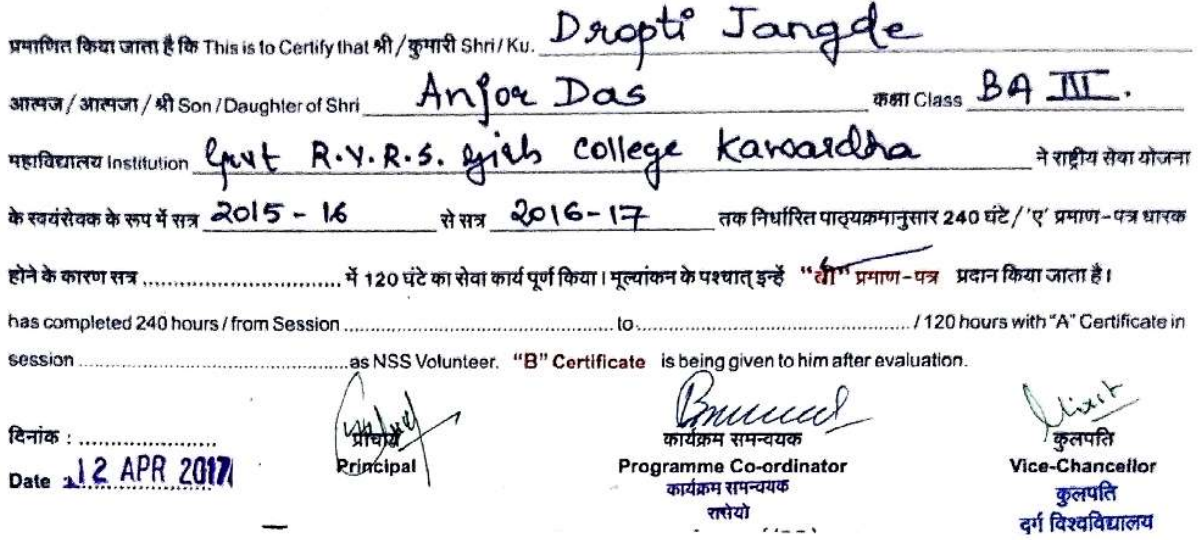 प्रमाणित किया जाता है कि This is to Certify that श्री / कुमारी Shri / Ku. Dropti Jangde
आत्मज / आत्मजा / श्री Son / Daughter of Shri Anjor Das कक्षा Class BA III.
महाविद्यालय Institution Govt R.V.R.S. girls college Kawardha ने राष्ट्रीय सेवा योजना
के स्वयंसेवक के रूप में सत्र 2015 - 16 से सत्र 2016-17 तक निर्धारित पाठ्यक्रमानुसार 240 घंटे / 'ए' प्रमाण-पत्र धारक
होने के कारण सत्र .................................. में 120 घंटे का सेवा कार्य पूर्ण किया। मूल्यांकन के पश्चात् इन्हें "बी" प्रमाण-पत्र प्रदान किया जाता है।
has completed 240 hours / from Session .................................................. to .................................................. / 120 hours with "A" Certificate in
session .................................................. as NSS Volunteer. "B" Certificate is being given to him after evaluation.
दिनांक : ........................
प्राचार्य कार्यक्रम समन्वयक कुलपति
Date 12 APR 2017 Principal Programme Co-ordinator Vice-Chancellor
कार्यक्रम समन्वयक कुलपति
रासेयो दुर्ग विश्वविद्यालय